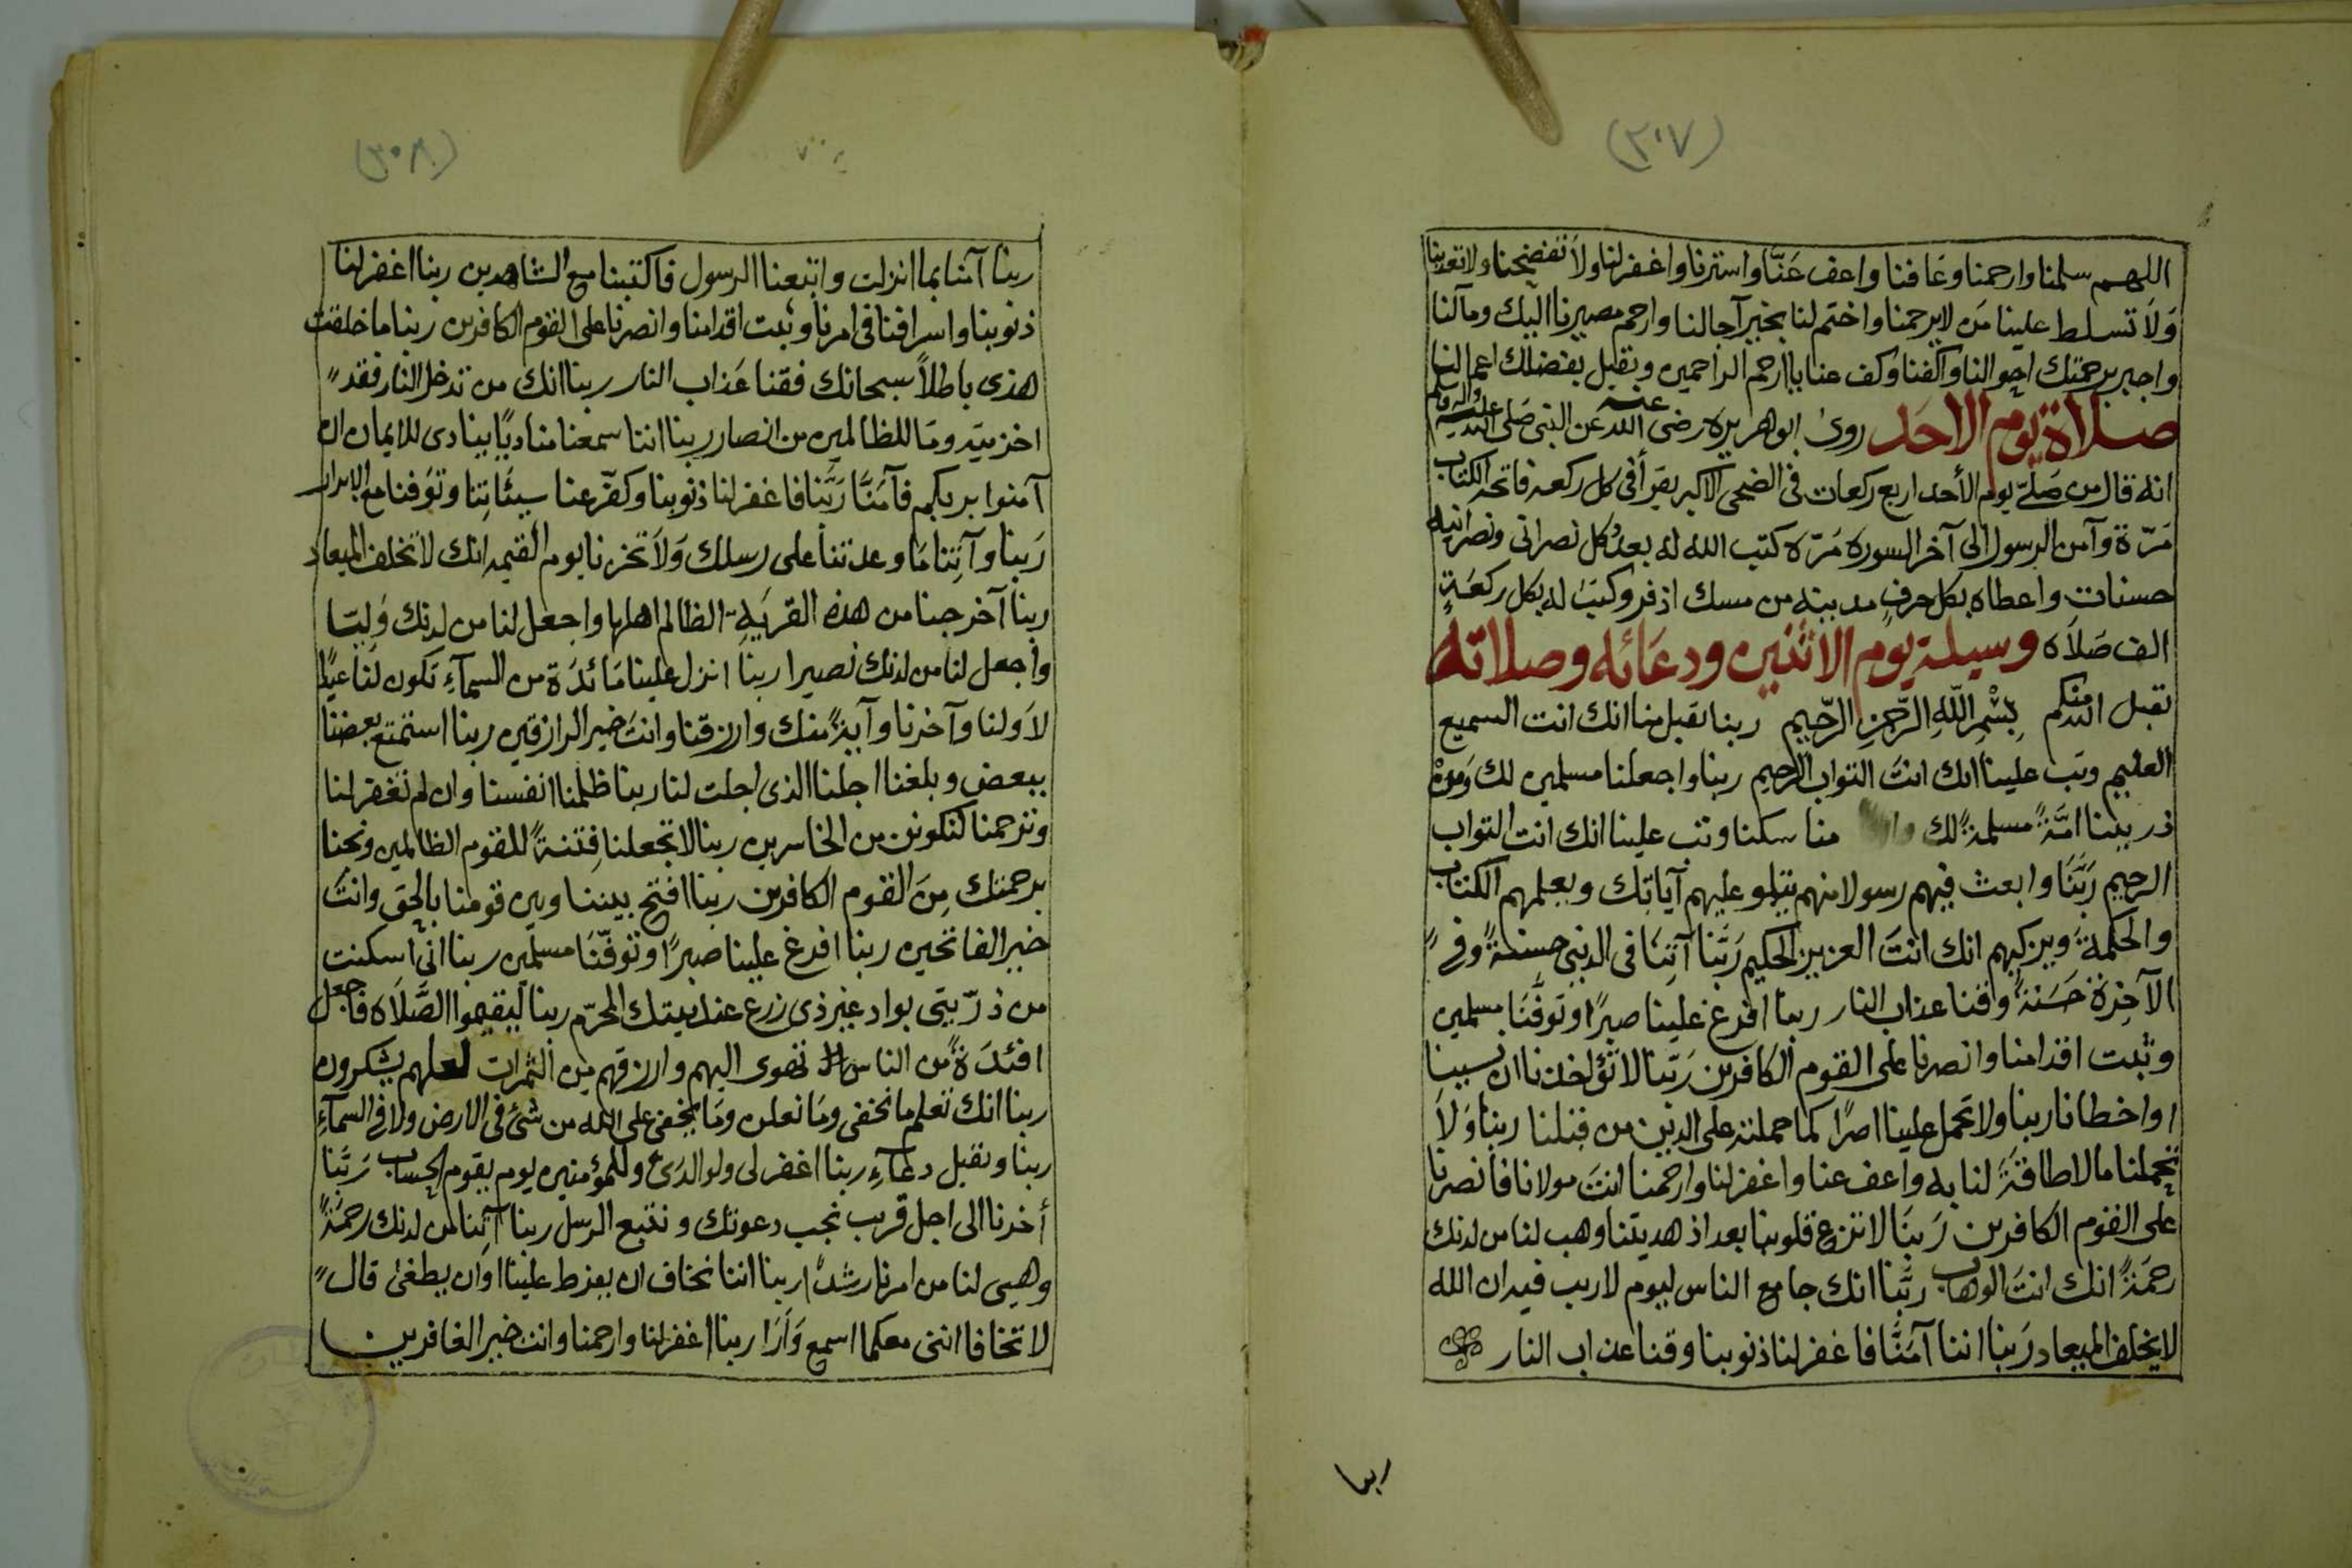 (٣٠٧)
اللهم سلمنا وارحمنا وعَافنا واعف عَنّا واسترنا واغفر لنا ولاَ تفضحنا ولا تعذبنا
وَلاَ تسلط علينا مَن لا يرحمنا واختم لنا بخير آجالنا وارحم مصيرنا اليك ومآلنا
واجبر برحمتك احوالنا واكفنا وكف عنا ياارحم الراحمين وتقبل بفضلك اعمالنا
صلاة يوم الاحَد روىٰ ابو هريره رضى الله عنه عن النبى صَلى الله عليه واله وسلم
انه قال من صَلّى يوم الأحد اربع ركعات فى الضحى الاكبر يقرَأفى كل ركعه فاتحة الكتاب
مَرّة وآمن الرسول الى آخر السوره مَرّه كتب الله له بعدُ كل نصرانى ونصرانيه
حسنات واعطاه بكل حرفٍ مدينه من مسك اذفر وكتبَ له بكل ركعَةٍ
الف صَلاَه وسيلة يوم الاثنين ودعَائه وصلاته
تقبل الله منكم بِسْمِ اللّهِ الرّحمنِ الرّحِيم ربنا تقبل منا انك انت السميع
العليم وتب علينا انك انتَ التواب الرحيم ربنا واجعلنا مسلمين لك وَمِنْ
ذريتنا امَّةً مسلمةً لك وارنا مناسكنا وتب علينا انك انت التواب
الرحيم رَبَّنَا وابعث فيهم رسولا منهم يتلو عليهم آياتك ويعلمهم الكتاب
والحكمةَ ويزكيهم انك انتَ العزيز الحكيم رَبَّنا آتِنَا فى الدنيى حسنةً وفى
الآخِرَةِ حَسَنةً وقنا عذاب النار ربنا افرغ علينا صبرًا وتوَفَّنَا مسلمين
وثبت اقدامنا وانصرنا على القوم الكافرين رَبّنا لا تؤاخذنا ان نسينا
اواخطانا ربنا ولا تحمل علينا اصرًا كما حملته على الذين من قبلنا ربنا وَلاَ
تحملنا مالا طاقَةَ لنا به واعف عنا واغفر لنا وارحمنا انتَ مولانا فانصرنا
على القوم الكافرين رَبنَا لا تزغ قلوبنا بعد اذ هديتنا وهب لنا من لدنك
رحمَةً انك انتَ الوهاب ربَّنا انك جامع الناس ليوم لا ريب فيه ان الله
لا يخلف الميعاد رَبنا اننا آمَنَّا فاغفر لنا ذنوبنا وقنا عذاب النار
ربنا
(٣٠٨)
ربنا آمنا بما انزلت واتبعنا الرسول فاكتبنا مع الشاهدين ربنا اغفر لنا
ذنوبنا واسرافنا فى امرنا وثبت اقدامنا وانصرنا على القوم الكافرين ربنا ما خلقت
هذى باطلاً سبحانك فقنا عَذاب النار ربنا انك من تدخل النار فقد
اخزيته ومَا للظالمين من انصار ربنا اننا سمعنا مناديًا ينادى للايمان ان
آمنوا بربكم فآمَنَّا رَبَّنا فاغفر لنا ذنوبنا وكفّر عنا سيئاتِنا وتوَفنا مع الابرار
رَبنا وآتِنا مَا وعدتنا على رسلك وَلاَ تخزنا يوم القيمه انك لا تخلف الميعاد
ربنا آخرجنا من هذه القريَةِ الظالم اهلها واجعل لنا من لدنك وَليّا
واجعل لنا من لدنك نصيرا ربنا انزل علينا مَائدَة من السمآءِ تكون لنا عيدًا
لاَولنا وآخرنا وآيةً منك وارزقنا وانتَ خير الرازقين ربنا استمتع بعضنا
ببعض وبلغنا اجلنا الذى اجلت لنا ربنا ظلمنا انفسنا وان لم تغفر لنا
وترحمنا لنكونن من الخاسرين ربنا لا تجعلنا فِتنةً للقوم الظالمين ونجنا
برحمتك مِنَ القوم الكافرين ربنا افتح بيننا وبين قومنا بالحق وانتَ
خير الفاتحين ربنا افرغ علينا صبرًا وتوَفّنَا مسلمين ربنا انى اسكنت
من ذرّيتى بواد غير ذى زرع عند بيتك المحرّم ربنا ليقيموا الصَّلاَه فاجعل
افئدَةً من الناس تهوى اليهم وارزقهم مِن الثمرات لعلهم يشكرون
ربنا انك تعلم ما نخفى ومَا نعلن ومَا يخفى على الله من شئ فى الارض ولا فى السمآءِ
ربنا وتقبل دعآءِ ربنا اغفر لى ولوالدَى وللمؤمنين يوم يقوم الحساب رَبَّنا
أخرنا الى اجل قريب نجب دعوتك ونتبع الرسل ربنا آتِنا من لدنك رحمَةً
وهيى لنا من امرنا رشدًا ربنا اننا نخاف ان يفرط علينا اوان يطغىٰ قال
لا تخافا اننى معكما اسمع وَاَرَا ربنا اغفر لنا وارحمنا وانت خير الغافرين